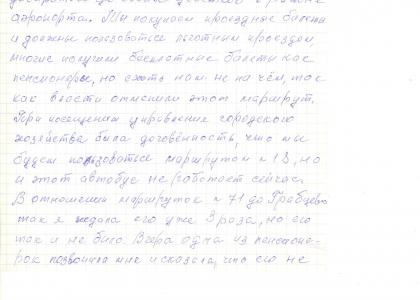 аэропорта. Мы покупаем проездные билеты
и должны пользоваться льготным проездом
многие получили бесплатные билеты как
пенсионеры, но ехать нам не на чём, так
как власти отменили этот маршрут.
При посещении управления городского
хозяйства была договённость, что мы
будем пользоваться маршрутом №18, но
и этот автобус не работает сейчас.
В отношении маршруток №71 до Грабцево
так я ждала его уже 3 раза, но его
так и не было. Вчера одна из пенсионе-
рок позвонила мне и сказала, что его не